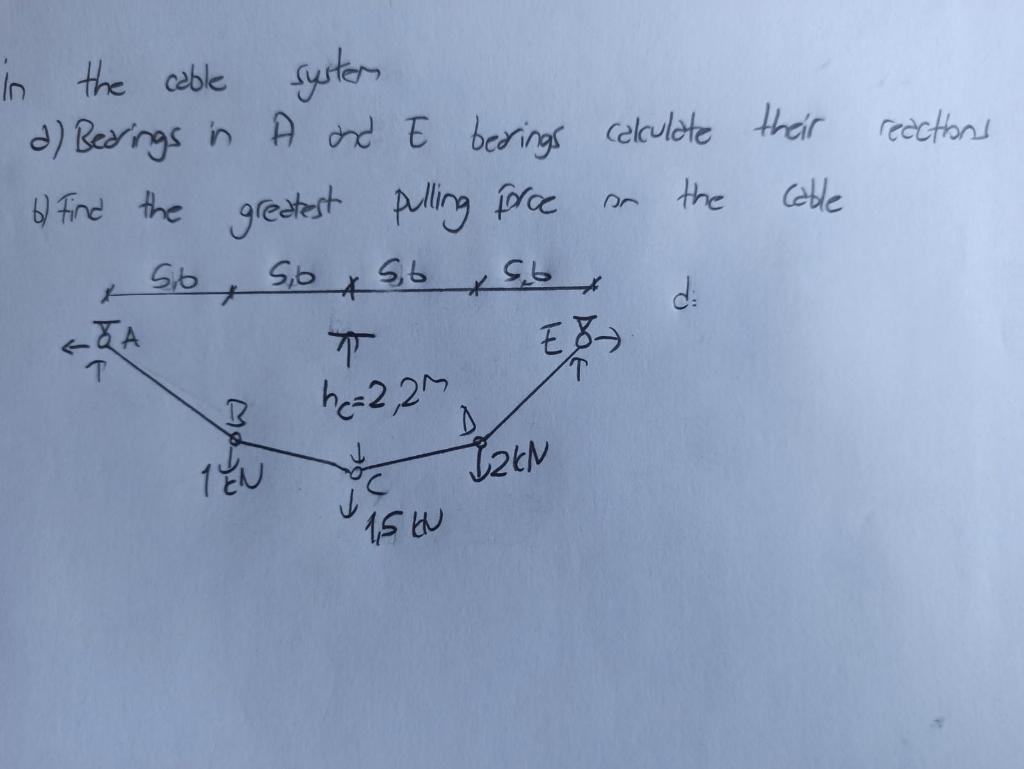 in the cable system
a) Bearings in A and E bearings calculate their reactions
b) Find the greatest pulling force on the cable
5,6 5,6 5,6 5,6 d:
A E
hc=2,2m
B D
1 kN C 2kN
1,5 kN